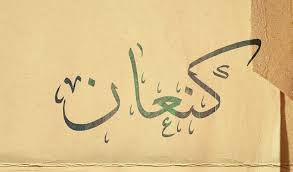 كنعان